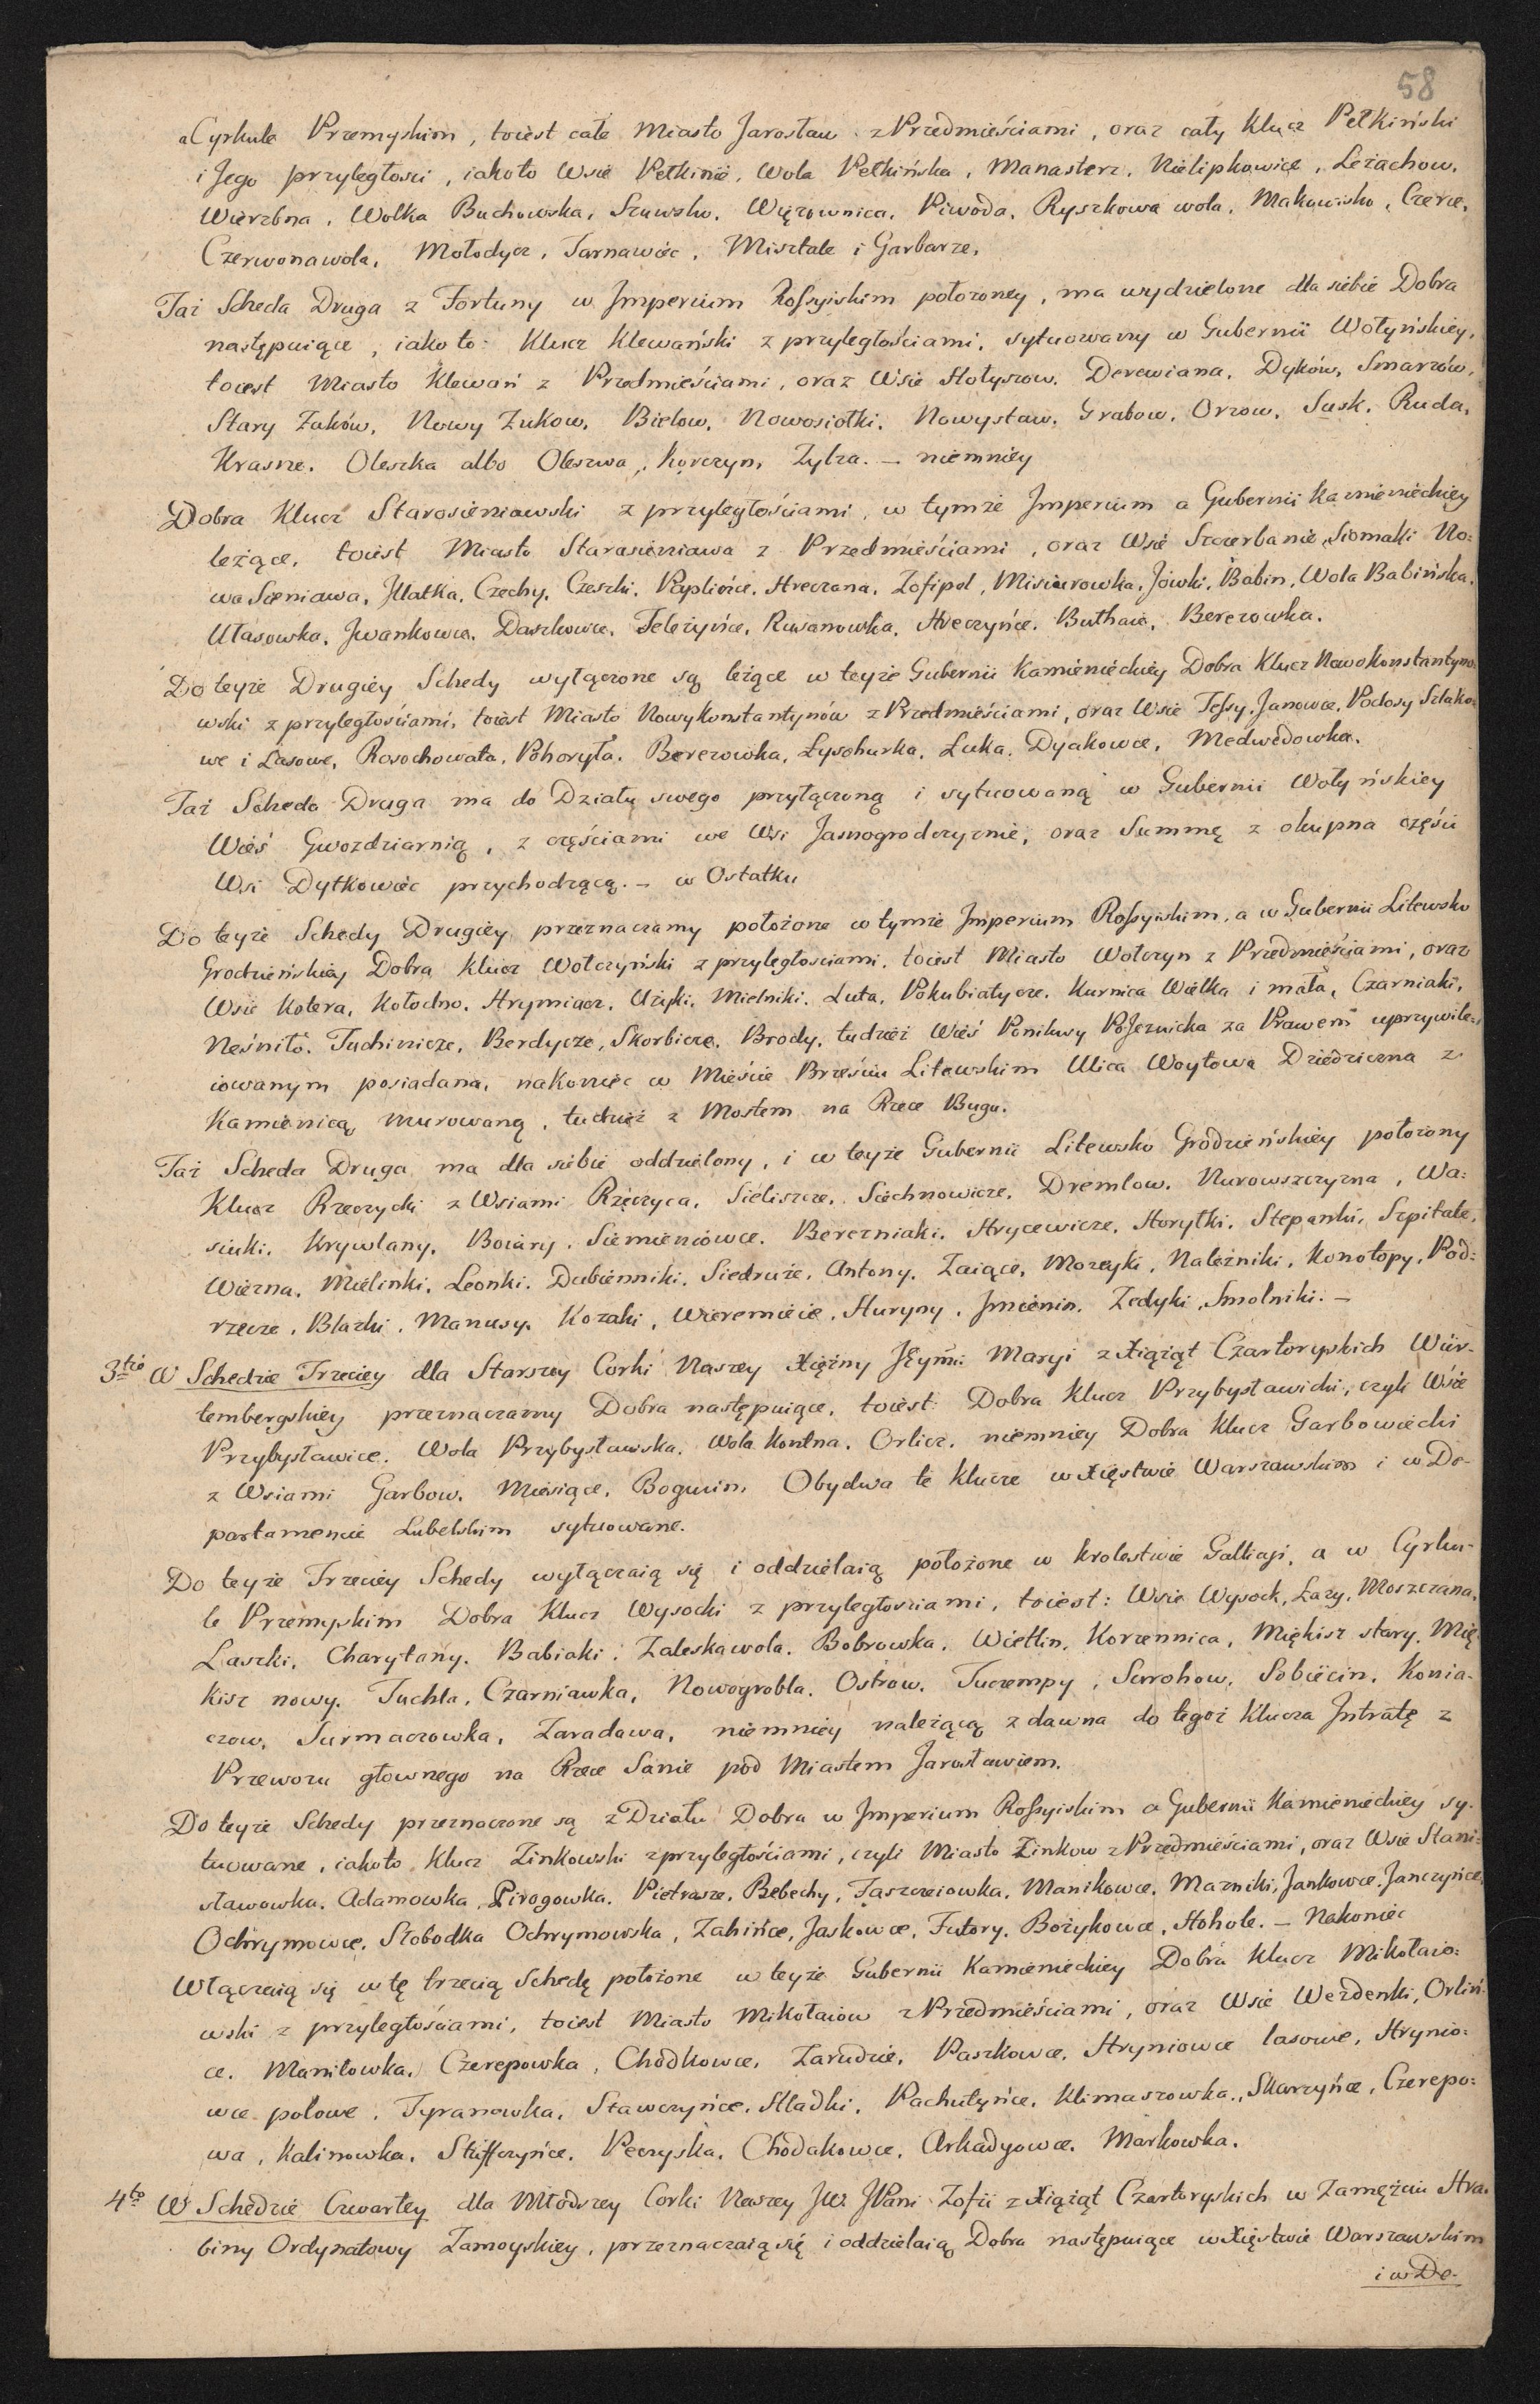 58
a Cyrkule Przemyskim, toiest całe Miasto Jarosław z Przedmieściami, oraz cały Klucz Pełkiński
i Jego przyległości, iakoto Wsie Pełkinie, Wola Pełkińska, Manasterz, Nielipkowice, Leżachow,
Wierzbna, Wolka Buchowska, Szuwsko, Więzownica, Piwoda, Ryszkowa wola, Makowisko, Czerce,
Czerwonawola, Mołodycz, Tarnawiec, Misztale i Garbarze.
Taż Scheda Druga z Fortuny w Imperium Rossyiskim położoney, ma wydzielone dla siebie Dobra
następuiące, iako to: Klucz Klewański z przyległościami, sytuowany w Gubernii Wołyńskiey,
toiest Miasto Klewań z Przedmieściami, oraz Wsie Hołyszow, Derewiana, Dyków, Smarzów,
Stary Żuków, Nowy Żukow, Bielow, Nowosiołki, Nowystaw, Grabow, Orzow, Susk, Ruda,
Krasne, Oleszka albo Oleszwa, Korczyn, Zylza. — niemniey
Dobra Klucz Starosieniawski z przyległościami, w tymże Imperium a Gubernii Kamienieckiey
leżące, toiest Miasto Starasieniawa z Przedmieściami, oraz Wsie Szczerbanie, Siomaki No:
wa Sieniawa, Ilatka, Czechy, Czeszki, Pyplińce, Hreczana, Zofipol, Misiurowka, Jówki, Babin, Wola Babińska,
Ułasowka, Iwankowce, Daszkowce, Teleżyńce, Ruwanowka, Hreczyńce, Buthaie, Berezowka.
Do teyże Drugiey Schedy wyłączone są leżące w teyże Gubernii Kamienieckiey Dobra Klucz Nowokonstantyno:
wski z przyległościami, toiest Miasto Nowykonstantynów z Przedmieściami, oraz Wsie Tessy, Janowce, Podosy Szlako:
we i Lasowe, Rosochowata, Pohoryła, Berezowka, Łysohurka, Łuka, Dyakowce, Medwedowka.
Taż Scheda Druga ma do Działu swego przyłączoną i sytuowaną w Gubernii Wołyńskiey
Wieś Gwozdziarnią, z częściami we Wsi Jasnogrodczyznie, oraz Summę z okupna części
Wsi Dytkowiec przychodzącą. — w Ostatku
Do teyże Schedy Drugiey przeznaczamy położone w tymże Imperium Rossyiskim, a w Gubernii Litewsko
Grodzieńskiey Dobra Klucz Wołczyński z przyległosciami, toiest Miasto Wołczyn z Przedmieściami, oraz
Wsie Kotera, Kołodno, Hrymiacz, Użyki, Mielniki, Luta, Pokubiatycze, Kurnica Wielka i mała, Czarniaki,
Neśniło, Tuchinicze, Berdycze, Skorbicze, Brody, tudzież Wieś Ponikwy PoJezuicka za Prawem uprzywile:
iowanym posiadana, nakoniec w Mieście Brześciu Litewskim Ulica Woytowa Dziedziczna z
Kamienicą murowaną, tudzież z Mostem na Rzece Bugu.
Taż Scheda Druga ma dla siebie oddzielony, i w teyże Gubernii Litewsko Grodzieńskiey położony
Klucz Rzeczycki z Wsiami Rzeczyca, Sieliszcze, Siechnowicze, Dremlow, Nurowszczyzna, Wa:
siuki, Krywlany, Boiary, Siemieniówce, Berezniaki, Hrycewicze, Horytki, Stepanki, Szpitale,
Wiezna, Mielinki, Leonki, Dubienniki, Siedruże, Antony, Zaiące, Mozeyki, Należniki, Konotopy, Pod:
rzecze, Blazki, Manusy, Kozaki, Wieremieie, Huryny, Imienin, Zedyki, Smolniki. —
3tio W Schedzie Trzeciey dla Starszey Corki Naszey Xiężny JEymci Maryi z Xiążąt Czartoryskich Wür-
tembergskiey przeznaczamy Dobra następuiące, toiest: Dobra Klucz Przybysławicki, czyli Wśie
Przybysławice, Wola Przybysławska, Wola Kontna, Orlicz, niemniey Dobra Klucz Garbowiecki
z Wsiami Garbow, Miesiące, Bogucin. Obydwa te klucze w Xięstwie Warszawskim i w De-
partamencie Lubelskim sytuowane.
Do teyże Trzeciey Schedy wyłączaią się i oddzielaią położone w krolestwie Galliaji, a w Cyrku-
le Przemyskim Dobra Klucz Wysocki z przyległosciami, toiest: Wsie Wysock, Łazy, Moszczana,
Laszki, Charytany, Babiaki, Zaleskawola, Bobrowka, Wietlin, Korzennica, Miękisz stary, Mię-
kisz nowy, Tuchla, Czarniawka, Nowogrobla, Ostrow, Tuczempy, Surohow, Sobiecin, Konia-
czow, Surmaczowka, Zaradawa, niemniey należącą z dawna do tegoż Klucza Intratę z
Przewozu głownego na Rzece Sanie pod Miastem Jarosławiem.
Do teyże Schedy przeznaczone są z Działu Dobra w Imperium Rossyiskim a Gubernii Kamienieckiey sy-
tuowane, iakoto Klucz Zinkowski z przyległościami, czyli Miasto Zinkow z Przedmieściami, oraz Wsie Stani:
sławowka, Adamowka, Pirogowka, Pietrasze, Bebechy, Taszczeiowka, Manikowce, Mazniki, Jankowce, Janczyńce,
Ochrymowce, Słobodka Ochrymowska, Zahińce, Jaskowce, Futory, Bożykowce, Hohole. — Nakoniec
Włączaią się w tę trzecią Schedę położone w teyże Gubernii Kamienieckiey Dobra Klucz Mikołaio:
wski z przyległościami, toiest Miasto Mikołaiow z Przedmieściami, oraz Wsie Wezdenki, Orliń-
ce, Maniłowka, Czerepowka, Chodkowce, Zarudzie, Paszkowce, Hryniowce lasowe, Hrynio:
wce polowe, Tyranowka, Stawczyńce, Hładki, Pachutyńce, Klimaszowka, Skarzyńce, Czerepo:
wa, Kalinowka, Stufczyńce, Peczyska, Chodakowce, Arkadyowce, Markowka.
4to W Schedzie Czwartey dla Młodszey Corki Naszey JW. JPani Zofii z Xiążąt Czartoryskich w Zamęźciu Hra:
biny Ordynatowy Zamoyskiey, przeznaczaią się i oddzielaią Dobra następuiące w Xięstwie Warszawskim
i w De-